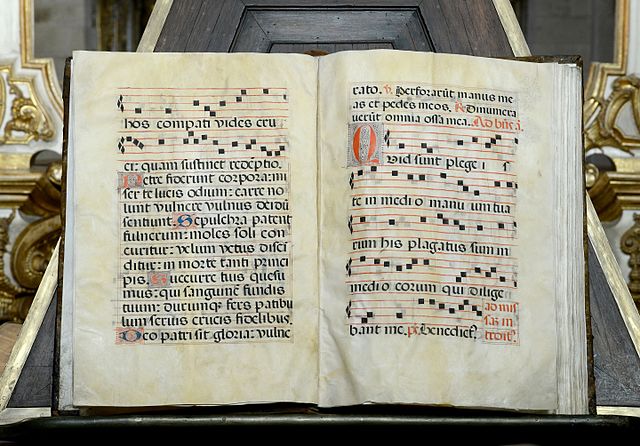 hos compati vides cru
quam sustinet redēptio.
Petre corpora: mi
ser te lucis odium:
vulnere vulnus
sentiunt. Sepulchra patent
vulnerum: moles soli con
curritur: velum vetus disci
ditur: in morte tanti princi
pis. Succurre tuis quesu
mus: qui sanguinē fundis
tuum: durumque fers patibu
lum crucis fidelibus.
Deo patri sit gloria: vulne
rato. v. Perforarūt manus me
as et pedes meos. R. Dinumera
verūt omnia ossa mea. Ad
Quid sunt plege i s
te in medio manuum tua
rum his plagatus sum in
medio eorum qui dilige
ad mis
sas in
bant me. ps.